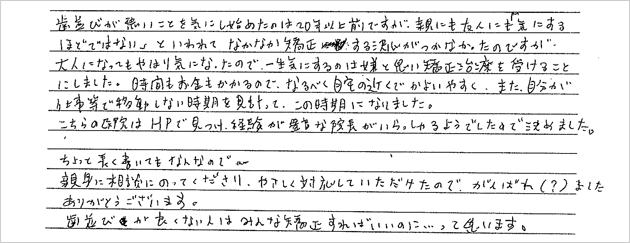 歯並びが悪いことを気にし始めたのは20年以上前ですが、親にも友人にも「気にする
ほどではない」といわれて なかなか矯正する決心がつかなかったのですが
大人になってもやはり気になったので、一生気にするのは嫌と思い矯正治療を受けること
にしました。時間もお金もかかるので、なるべく自宅の近くでかよいやすく、また、自分が
仕事等で移動しない時期を見計って、この時期になりました。
こちらの医院はHPで見つけ、経験が豊富な院長がいらっしゃるようでしたので決めました。
ちょっと長く書いてもなんなので〜
親身に相談にのってくださり、やさしく対応していただけたので、がんばれ(?)ました
ありがとうございます。
歯並びが良くない人はみんな矯正すればいいのに…って思います。